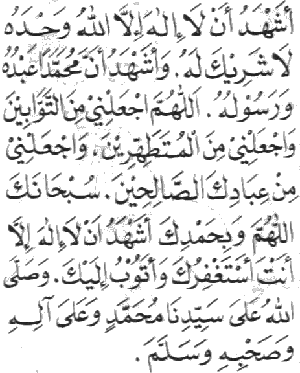 أَشْهَدُ أَنْ لَا إِلٰهَ إِلَّا اللهُ وَحْدَهُ
لَا شَرِيْكَ لَهُ. وَأَشْهَدُ أَنَّ مُحَمَّدًا عَبْدُهُ
وَرَسُوْلُهُ. اَللّٰهُمَّ اجْعَلْنِيْ مِنَ التَّوَّابِيْنَ
وَاجْعَلْنِيْ مِنَ الْمُتَطَهِّرِيْنَ، وَاجْعَلْنِيْ
مِنْ عِبَادِكَ الصَّالِحِيْنَ. سُبْحَانَكَ
اللّٰهُمَّ وَبِحَمْدِكَ أَشْهَدُ اَنْ لَا إِلٰهَ إِلَّا
أَنْتَ أَسْتَغْفِرُكَ وَأَتُوْبُ إِلَيْكَ. وَصَلَّى
اللهُ عَلَى سَيِّدِنَا مُحَمَّدٍ وَعَلَى آلِهِ
وَصَحْبِهِ وَسَلَّمَ.